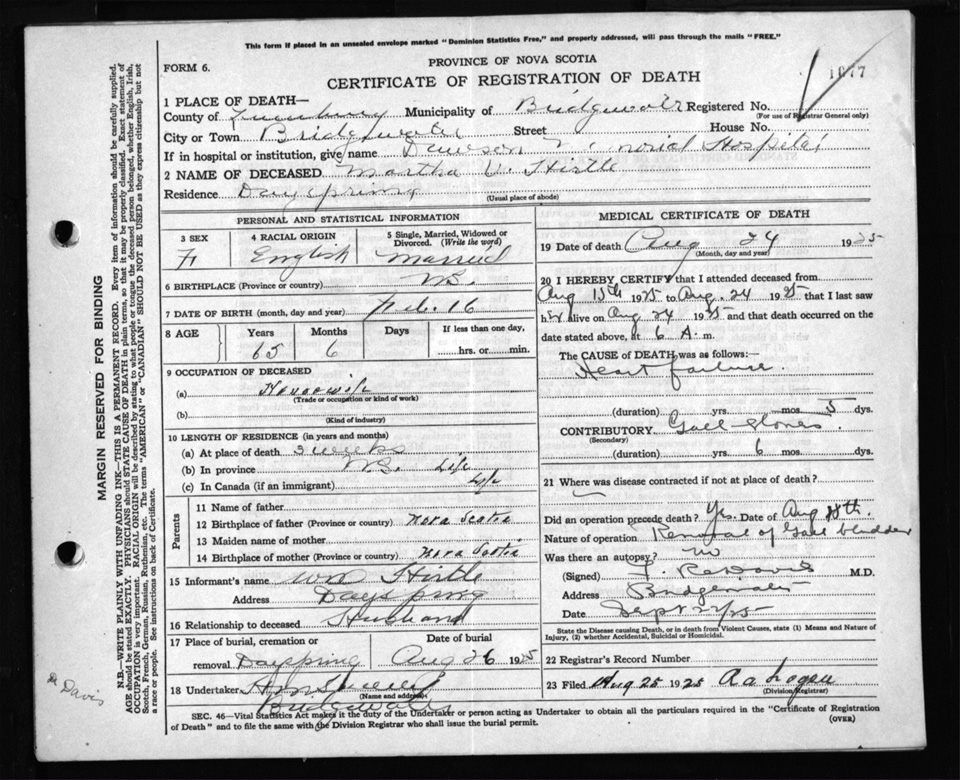 This form if placed in an unsealed envelope marked "Dominion Statistics Free," and properly addressed, will pass through the mails "FREE."
FORM 6.
PROVINCE OF NOVA SCOTIA
CERTIFICATE OF REGISTRATION OF DEATH
1077
1 PLACE OF DEATH—
County of Lunenburg Municipality of Bridgewater Registered No.
(For use of Registrar General only)
City or Town Bridgewater Street House No.
If in hospital or institution, give name Dawson Memorial Hospital
2 NAME OF DECEASED Martha V. Hirtle
Residence Dayspring
(Usual place of abode)
PERSONAL AND STATISTICAL INFORMATION
3 SEX
F
4 RACIAL ORIGIN
English
5 Single, Married, Widowed or Divorced. (Write the word)
Married
6 BIRTHPLACE (Province or country) N.S.
7 DATE OF BIRTH (month, day and year) Feb. 16
8 AGE Years Months Days If less than one day,
65 6 hrs. or min.
9 OCCUPATION OF DECEASED
(a) Housewife
(Trade or occupation or kind of work)
(b)
(Kind of industry)
10 LENGTH OF RESIDENCE (in years and months)
(a) At place of death 3 weeks
(b) In province N.S. Life
(c) In Canada (if an immigrant) Life
Parents
11 Name of father
12 Birthplace of father (Province or country) Nova Scotia
13 Maiden name of mother
14 Birthplace of mother (Province or country) Nova Scotia
15 Informant's name Hirtle
Address Dayspring
16 Relationship to deceased Husband
17 Place of burial, cremation or Date of burial
removal Dayspring Aug 26 1925
18 Undertaker
(Name and address)
Bridgewater
MEDICAL CERTIFICATE OF DEATH
19 Date of death Aug 24 1925
(Month, day and year)
20 I HEREBY CERTIFY that I attended deceased from
Aug 15th 1925 to Aug. 24 1925 that I last saw
her alive on Aug 24 1925 and that death occurred on the
date stated above, at 6 A. m.
The CAUSE OF DEATH was as follows:
Heart failure.
(duration) yrs. mos. 5 dys.
CONTRIBUTORY Gall stones
(Secondary)
(duration) yrs. 6 mos. dys.
21 Where was disease contracted if not at place of death?
Did an operation precede death? Yes. Date of Aug
Nature of operation Removal of Gall bladder
Was there an autopsy? no
(Signed) Davis M.D.
Address Bridgewater
Date Sept 25
State the Disease causing Death, or in death from Violent Causes, state (1) Means and Nature of
Injury, (2) whether Accidental, Suicidal or Homicidal.
22 Registrar's Record Number
23 Filed Aug 25 1925
(Division Registrar)
SEC. 46—Vital Statistics Act makes it the duty of the Undertaker or person acting as Undertaker to obtain all the particulars required in the "Certificate of Registration
of Death" and to file the same with the Division Registrar who shall issue the burial permit. (OVER)
MARGIN RESERVED FOR BINDING
N.B.—WRITE PLAINLY WITH UNFADING INK—THIS IS A PERMANENT RECORD. Every item of information should be carefully supplied.
AGE should be stated EXACTLY. PHYSICIANS should STATE CAUSE OF DEATH in plain terms, so that it may be properly classified. Exact statement of
OCCUPATION is very important. RACIAL ORIGIN will be described by stating to what people or tongue the deceased person belonged, whether English, Irish,
Scotch, French, German, Russian, Ruthenian, etc. The terms "AMERICAN" or "CANADIAN" SHOULD NOT BE USED as they express citizenship but not
a race or people. See instructions on back of Certificate.
Dr Davis